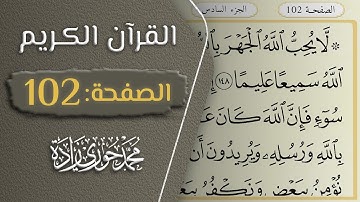 القرآن الكريم
الصفحة: 102
محمد حوري زادة
الصفحة 102
الجزء السادس
لَّا يُحِبُّ ٱللَّهُ ٱلْجَهْرَ بِٱ
ٱللَّهُ سَمِيعًا عَلِيمًا ١٤٨
سُوٓءٍ فَإِنَّ ٱللَّهَ كَانَ عَ
بِٱللَّهِ وَرُسُلِهِۦ وَيُرِيدُونَ أَن
نُؤْمِنُ بِبَعْضٍ وَنَكْفُرُ